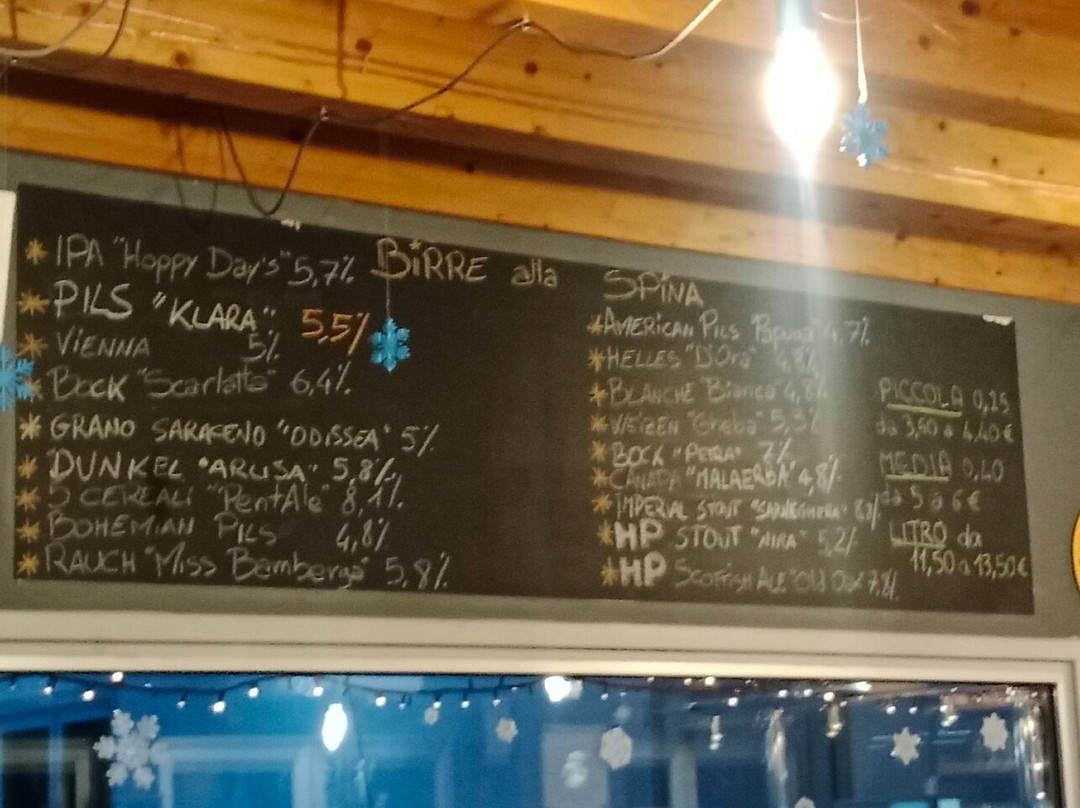 BiRRE alla SPiNA
IPA "Hoppy Day's" 5,7%
PILS "KLARA" 5,5%
ViENNA 5%
BOCK "Scarlatta" 6,4%
GRANO SARACENO "ODISSEA" 5%
DUNKEL "ARUSA" 5,8%
5 CEREALI "PentAle" 8,1%
BOHEMIAN PiLS 4,8%
RAUCH "Miss Bamberga" 5,8%
AMERICAN PILS 4,7%
HELLES "D'Ora" 4,8%
BLANCHE "Bianca" 4,8%
WEIZEN "Gheba" 5,3%
BOCK "PETRA" 7%
CANAPA "MALAERBA" 4,8%
IMPERIAL STOUT 8,2%
HP STOUT "NIRA" 5,2%
HP SCOTTISH ALE "Old Oak" 7,2%
PICCOLA 0,25
da 3,60 a 4,40 €
MEDIA 0,40
da 5 a 6 €
LITRO da
11,50 a 13,50€